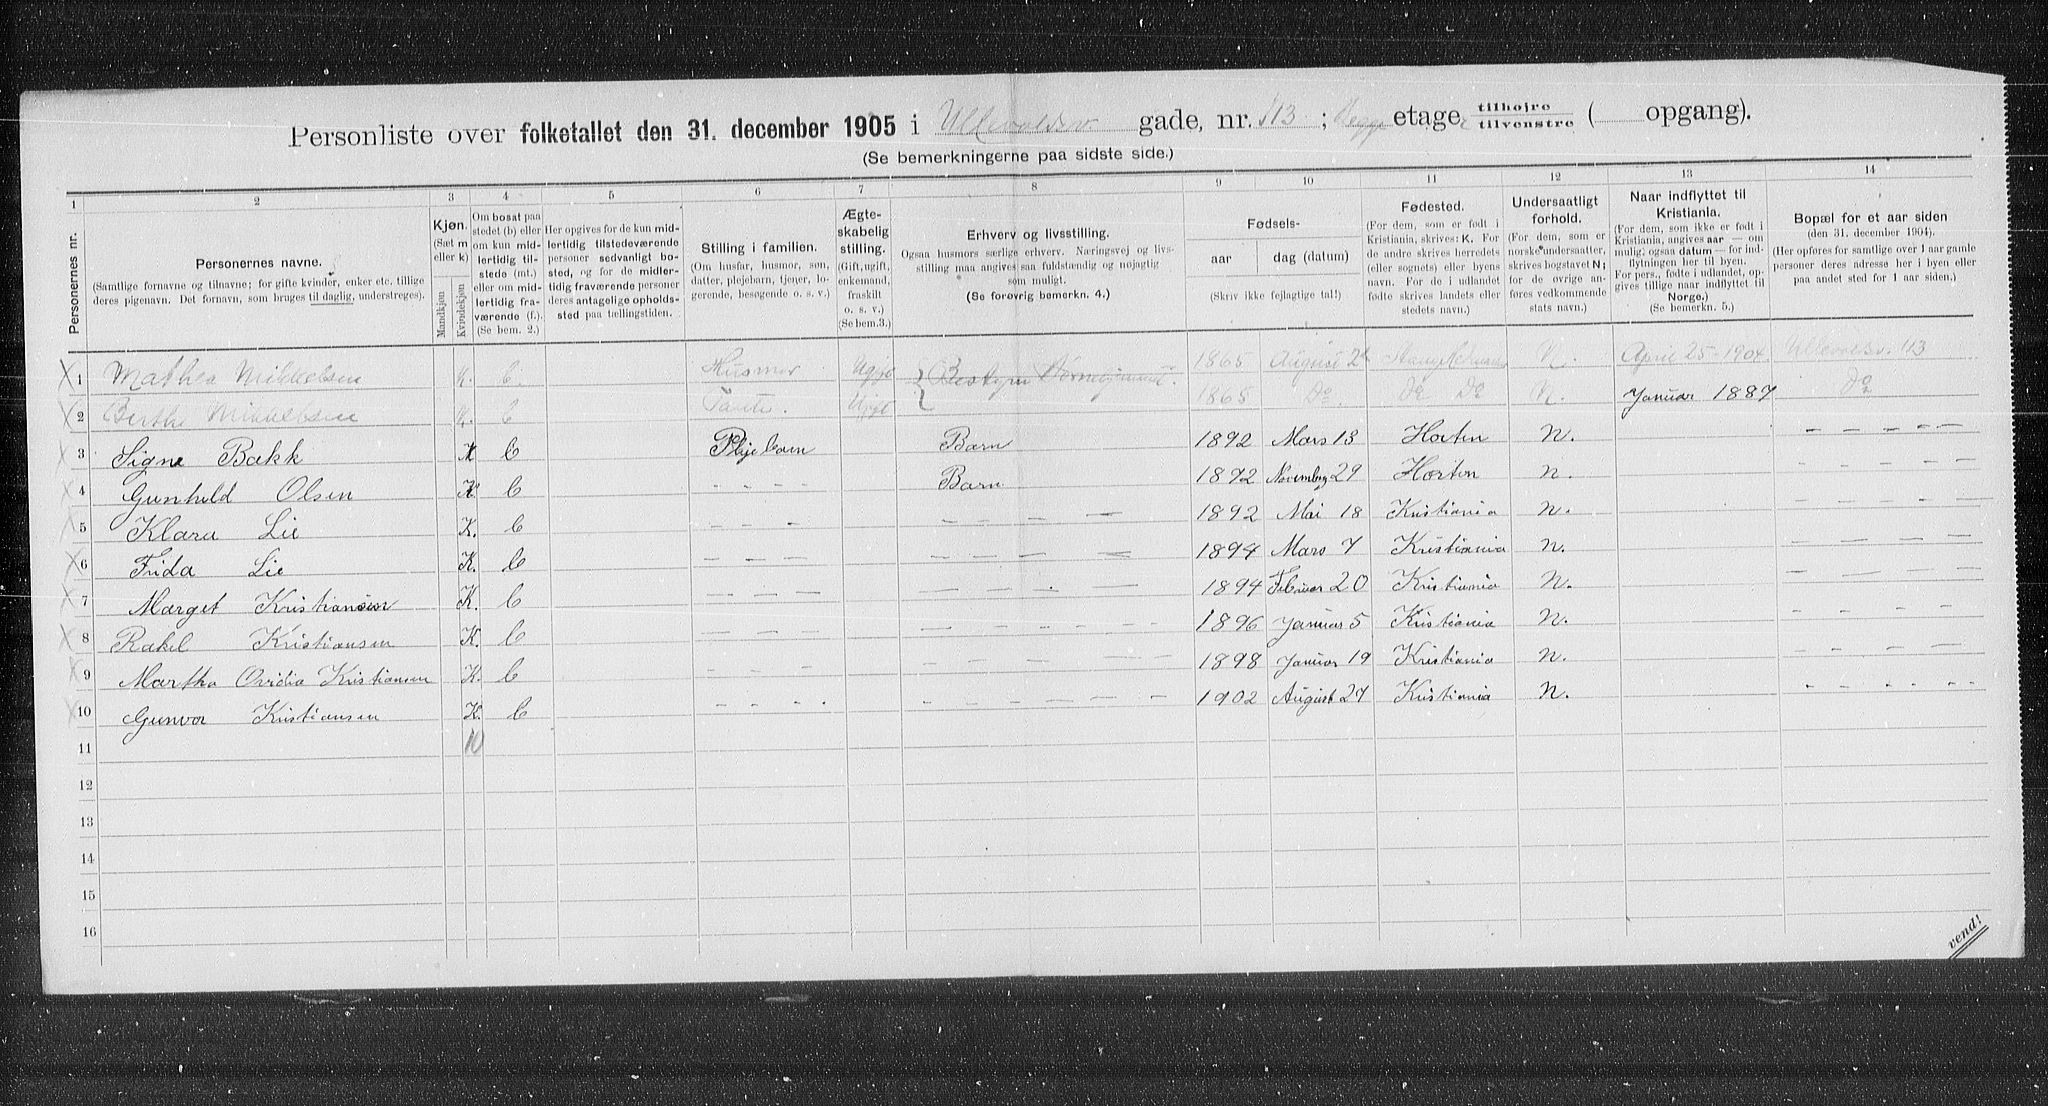 Personliste over folketallet den 31. december 1905 i Ullevoldsv gade, nr. 113 ; Begge etage tilhøjre / tilvenstre ( opgang).
(Se bemerkningerne paa sidste side.)
1 2 3 4 5 6 7 8 9 10 11 12 13 14
Personernes nr.
Personernes navne.
(Samtlige fornavne og tilnavne; for gifte kvinder, enker etc. tillige deres pigenavn. Det fornavn, som bruges til daglig, understreges).
Kjøn.
(Sæt m eller k)
Mandkjøn
Kvindekjøn
Om bosat paa stedet (b) eller om kun midlertidig tilstede (mt.) eller om midlertidig fraværende (f.). (Se bem. 2.)
Her opgives for de kun midlertidig tilstedeværende personer sedvanligt bosted, og for de midlertidig fraværende personer deres antagelige opholdssted paa tællingstiden.
Stilling i familien.
(Om husfar, husmor, søn, datter, plejebarn, tjener, logerende, besøgende o. s. v.)
Ægteskabelig stilling.
(Gift, ugift, enkemand, fraskilt o. s. v.) (Se bem.3.)
Erhverv og livsstilling.
Ogsaa husmors særlige erhverv. Næringsvej og livsstilling maa angives saa fuldstændig og nøjagtig som muligt.
(Se forøvrig bemerkn. 4.)
Fødsels-
aar dag (datum)
(Skriv ikke fejlagtige tal!)
Fødested.
(For dem, som er født i Kristiania, skrives: K. For de andre skrives herredets (eller sognets) eller byens navn. For de i udlandet fødte skrives landets eller stedets navn.)
Undersaatligt forhold.
(For dem, som er norske undersaatter, skrives bogstavet N; for de øvrige anføres vedkommende stats navn.)
Naar indflyttet til Kristiania.
(For dem, som ikke er født i Kristiania, angives aar — om mulig ogsaa datum — for indflytningen her til byen. For pers., fødte i udlandet, opgives tillige naar indflyttet til Norge.)
(Se bemerkn. 5.)
Bopæl for et aar siden
(den 31. december 1904).
(Her opføres for samtlige over 1 aar gamle personer deres adresse her i byen eller paa andet sted for 1 aar siden.)
1 Mathea Mikkelsen K. b. Husmor Ugift Bestyr Børnehjemmet. 1865 August 24 N. April 25 - 1904 Ullevoldsv. 113
2 Berthe Mikkelsen K. b Tante. Ugift 1865 Do. Do Do N. Januar 1887 Do
3 Signe Bakk K b Plejebarn Barn 1892 Mars 13 Horten N. - - - -
4 Gunhild Olsen K. b - - - - Barn 1892 Novembeg 29 Horten N. - - - -
5 Klara Lie K. b - - - - - - - 1892 Mai 18 Kristiania N. - - - -
6 Frida Lie K. b - - - - - - - - 1894 Mars 7 Kristiania N. - - - -
7 Marget Kristiansen K. b - - - - - - - - 1894 Februar 20 Kristiania N. - - - -
8 Rakel Kristiansen K. b - - - - - - - - 1896 Januar 5 Kristiania N. - - - -
9 Martha Ovidia Kristiansen K. b - - - - - - - - - 1898 Januar 19 Kristiania N. - - - -
10 Gunvor Kristiansen K. b - - - - - - - - - 1902 August 27 Kristiania N. - - - - -
11 10
12
13
14
15
16
vend!